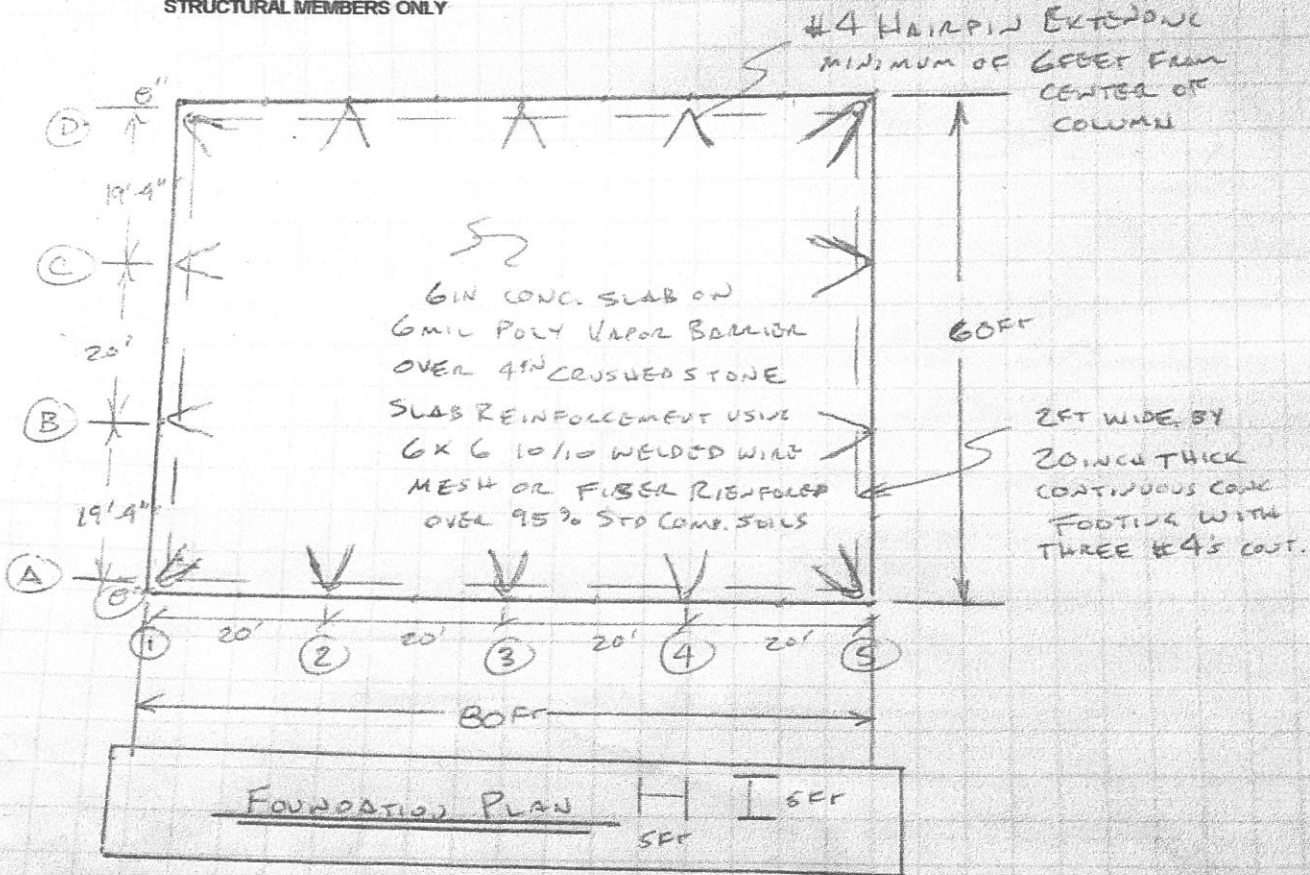 STRUCTURAL MEMBERS ONLY
#4 HAIRPIN EXTENDING
MINIMUM OF 6FEET FROM
CENTER OF
COLUMN
8"
D
19'-4"
C
20'
B
19'4"
A
8"
6IN CONC. SLAB ON
6MIL POLY VAPOR BARRIER
OVER 4IN CRUSHED STONE
SLAB REINFORCEMENT USING
6 X 6 10/10 WELDED WIRE
MESH OR FIBER RIENFORED
OVER 95% STD COMP. SOILS
60FT
2FT WIDE BY
20INCH THICK
CONTINUOUS CONC
FOOTING WITH
THREE #4'S CONT.
1 20' 2 20' 3 20' 4 20' 5
80FT
FOUNDATION PLAN
5FT
5FT